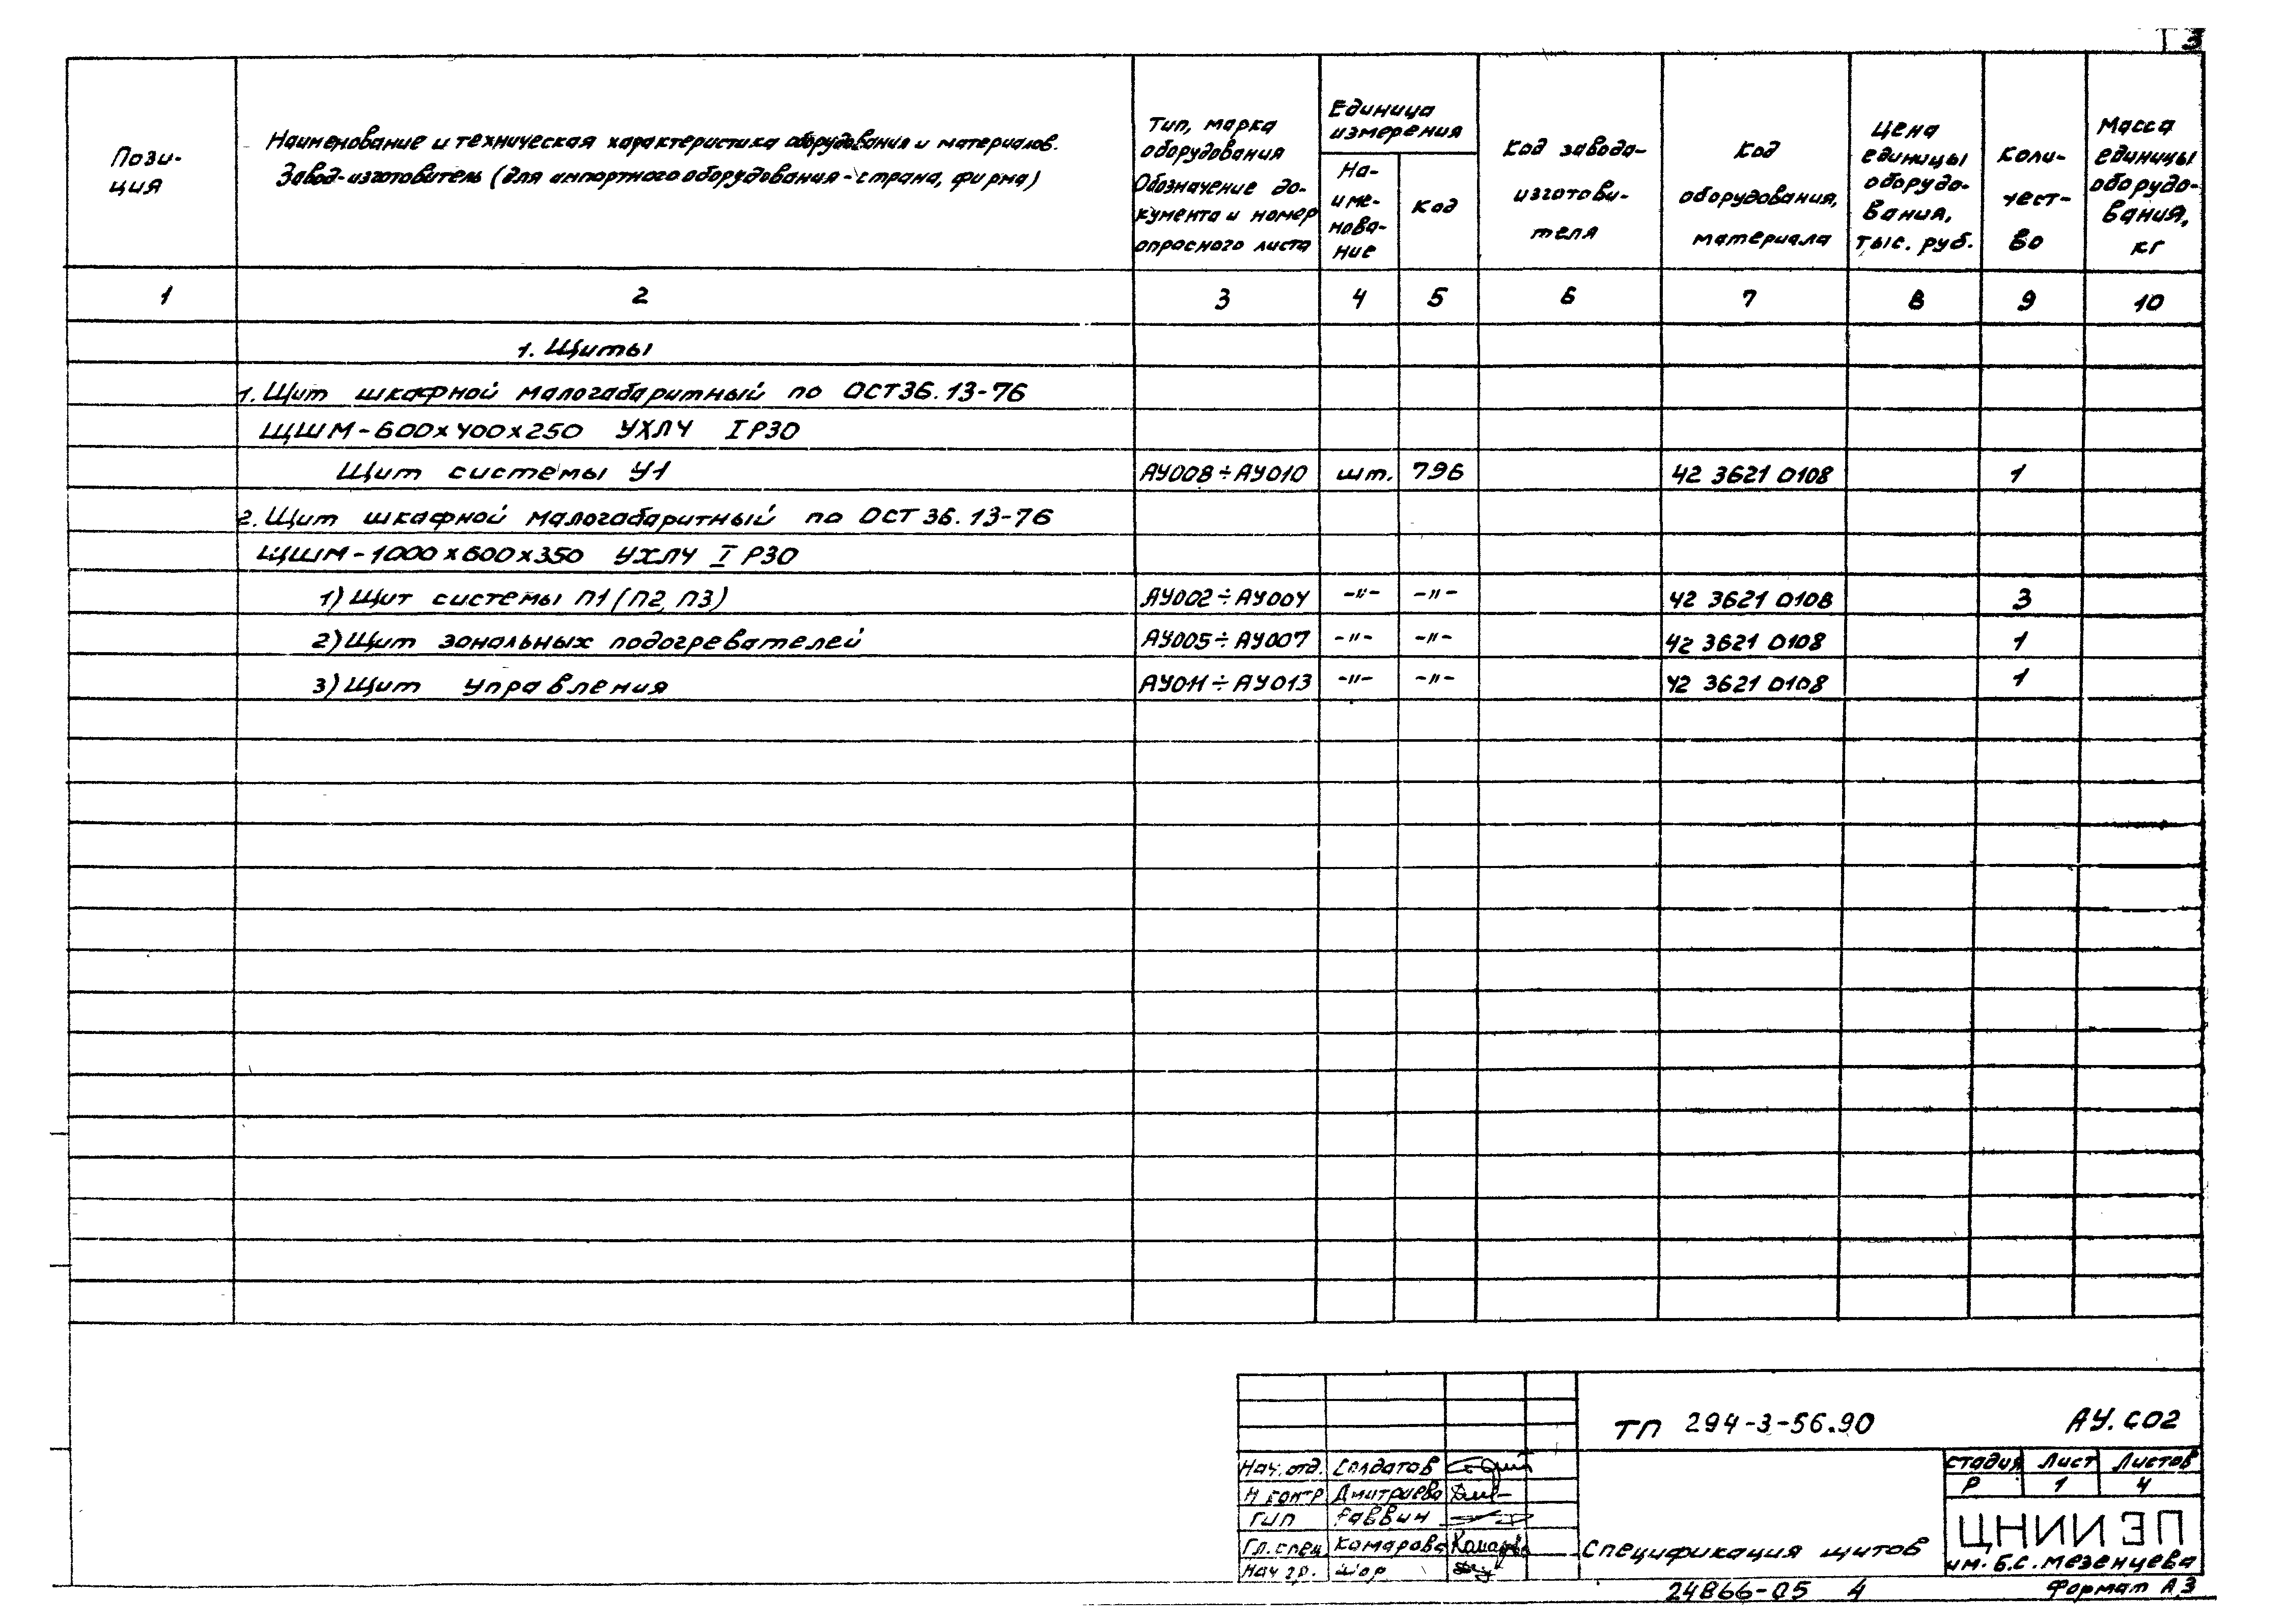 3
Пози-
ция
Наименование и техническая характеристика оборудования и материалов.
Завод-изготовитель (для импортного оборудования - страна, фирма)
Тип, марка
оборудования
Обозначение до-
кумента и номер
опросного листа
Единица
измерения
На-
име-
нова-
ние
Код
Код завода-
изготови-
теля
Код
оборудования,
материала
Цена
единицы
оборудо-
вания,
тыс. руб.
Коли-
чест-
во
Масса
единицы
оборудо-
вания,
кг
1 2 3 4 5 6 7 8 9 10
1. Щиты
1. Щит шкафной малогабаритный по ОСТ 36.13-76
ЩШМ-600х400х250 УХЛ4 IP30
Щит системы У1 АУ008÷АУ010 шт. 796 42 3621 0108 1
2. Щит шкафной малогабаритный по ОСТ 36.13-76
ЩШМ-1000х600х350 УХЛ4 IP30
1) Щит системы П1 (П2, П3) АУ002÷АУ004 -"- -"- 42 3621 0108 3
2) Щит зональных подогревателей АУ005÷АУ007 -"- -"- 42 3621 0108 1
3) Щит управления АУ011÷АУ013 -"- -"- 42 3621 0108 1
ТП 294-3-56.90 АУ.СО2
Нач. отд. Солдатов
Н контр Дмитриева
ГИП Раввин
Гл. спец. Комарова
Нач гр. Шор
Спецификация щитов
стадия Лист Листов
Р 1 4
ЦНИИЭП
им. Б.С. Мезенцева
24866-05 4
Формат А3